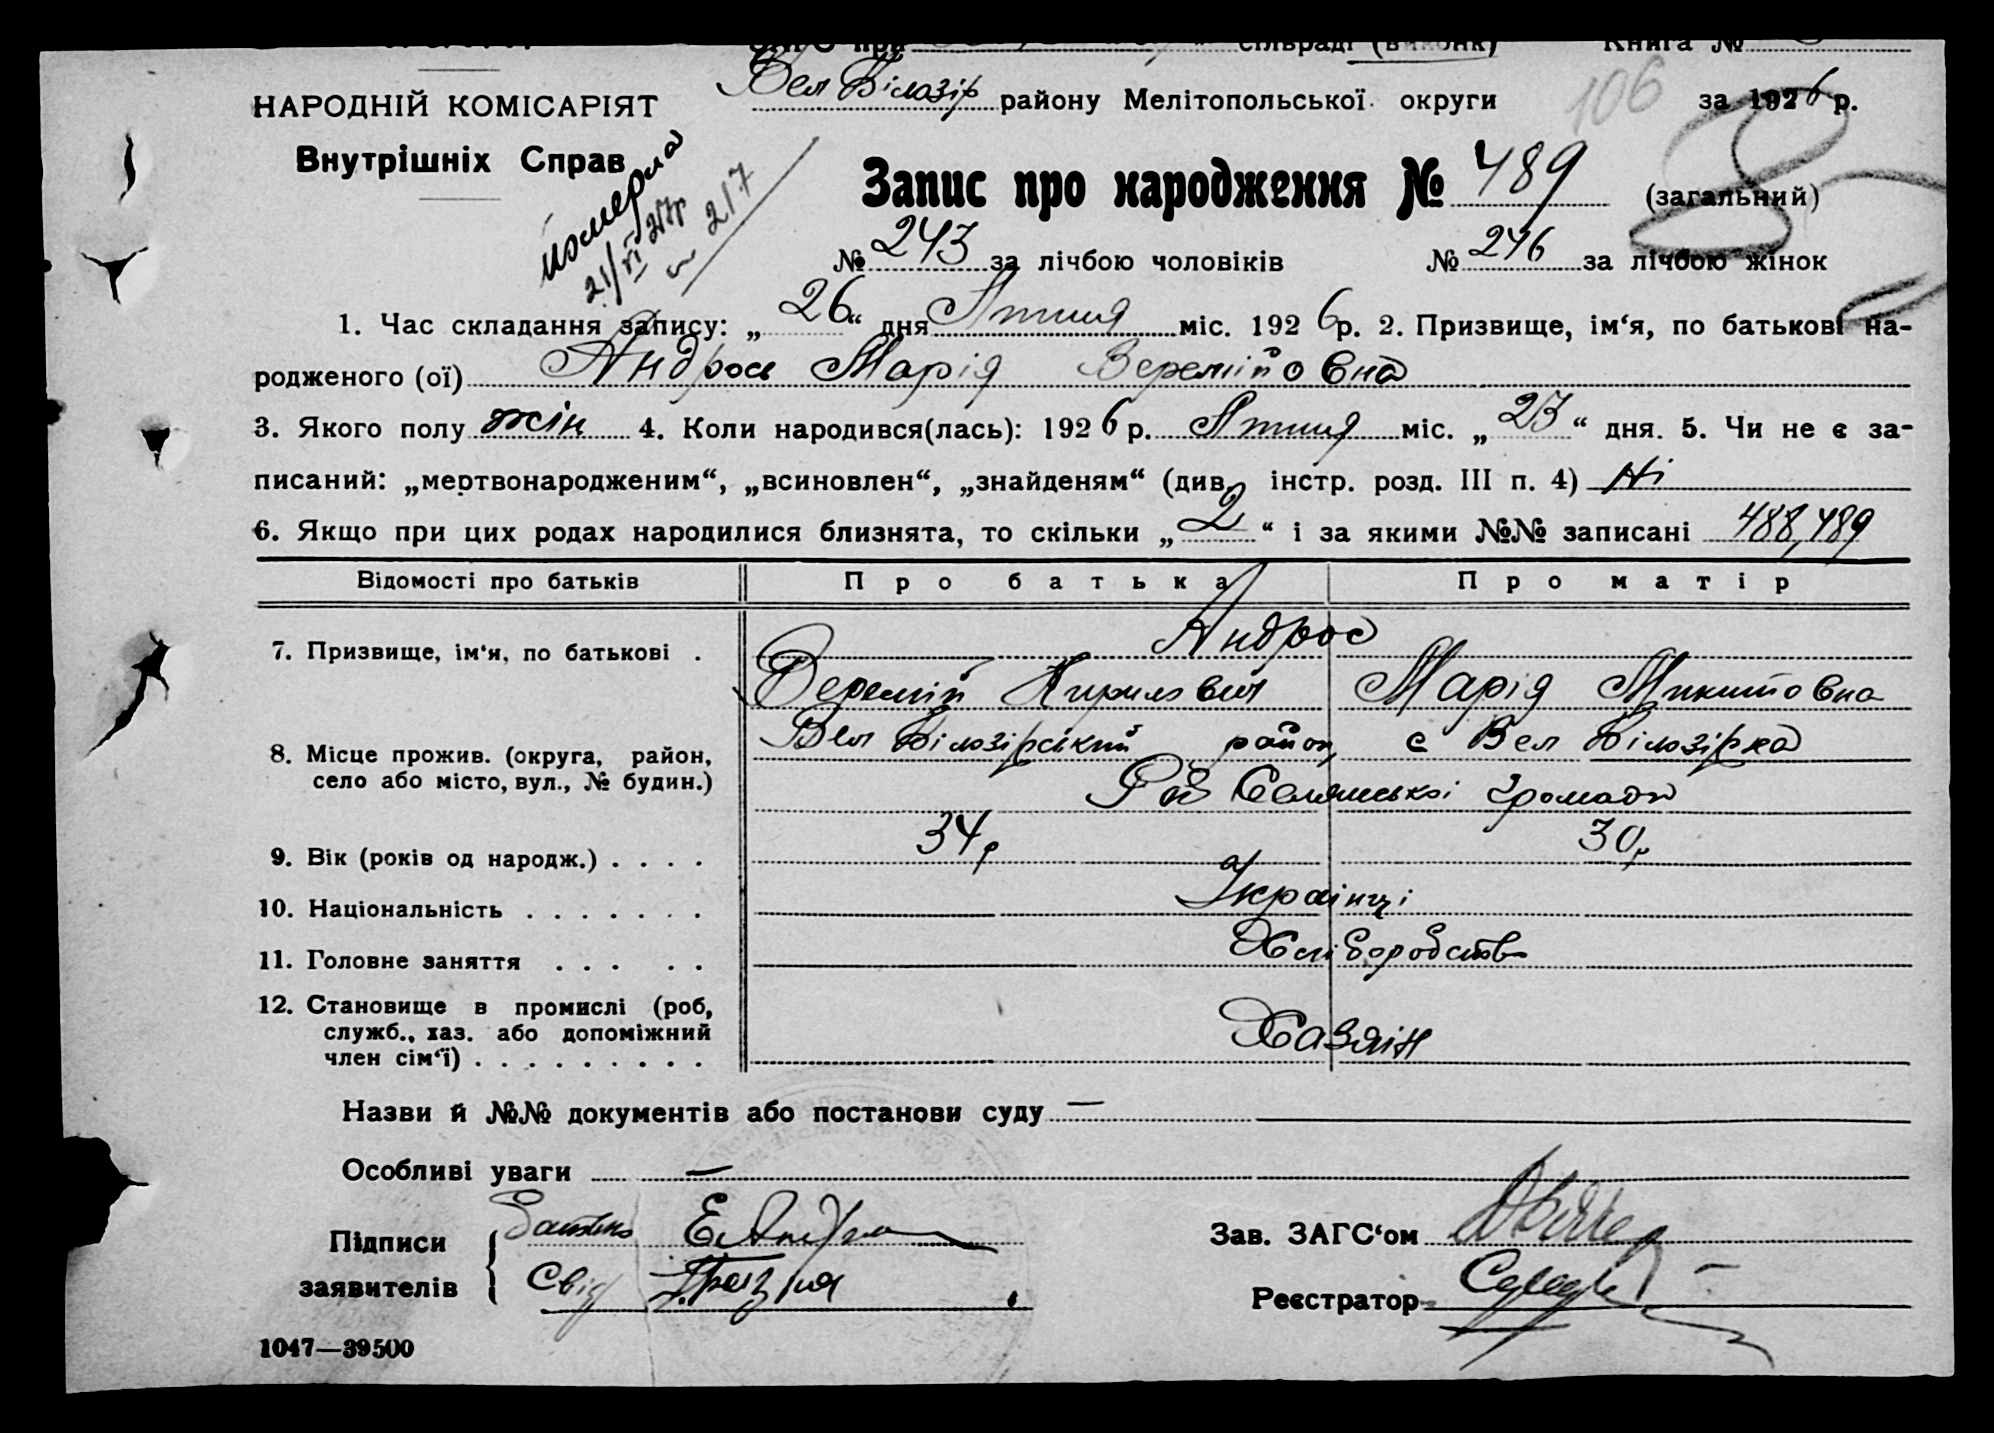 сільраді (виконк) Книга №
Вел Білозір району Мелітопольської округи 106 за 1926 р.
НАРОДНІЙ КОМІСАРІЯТ
Внутрішніх Справ
померла
21/VI 27р
217
Запис про народження № 489 (загальний)
№ 243 за лічбою чоловіків № 246 за лічбою жінок
1. Час складання запису: „26“ дня Липня міс. 1926 р. 2. Призвище, ім‘я, по батькові на-
родженого (ої) Андрос Марія Веремійовна
3. Якого полу жін 4. Коли народився(лась): 1926 р. Липня міс. „23“ дня. 5. Чи не є за-
писаний: „мертвонародженим“, „всиновлен“, „знайденям“ (див. інстр. розд. III п. 4) Ні
6. Якщо при цих родах народилися близнята, то скільки „2“ і за якими №№ записані 488, 489
Відомості про батьків Про батька Про матір
7. Призвище, ім‘я, по батькові . Андрос
Веремій Кирилович Марія Микитовна
8. Місце прожив. (округа, район, село або місто, вул., № будин.) Вел Білозірський район, с Вел Білозірка
Селянської громади
9. Вік (років од народж.) . . . . 34р 30р
10. Національність . . . . . . . Українці
11. Головне заняття . . . . . Хліборобств
12. Становище в промислі (роб, служб., хаз. або допоміжний член сім‘ї) . . . . . . . . . Хазяїн
Назви й №№ документів або постанови суду —
Особливі уваги —
Підписи
заявителів
Свід
Зав. ЗАГС‘ом
Реєстратор
1047—39500